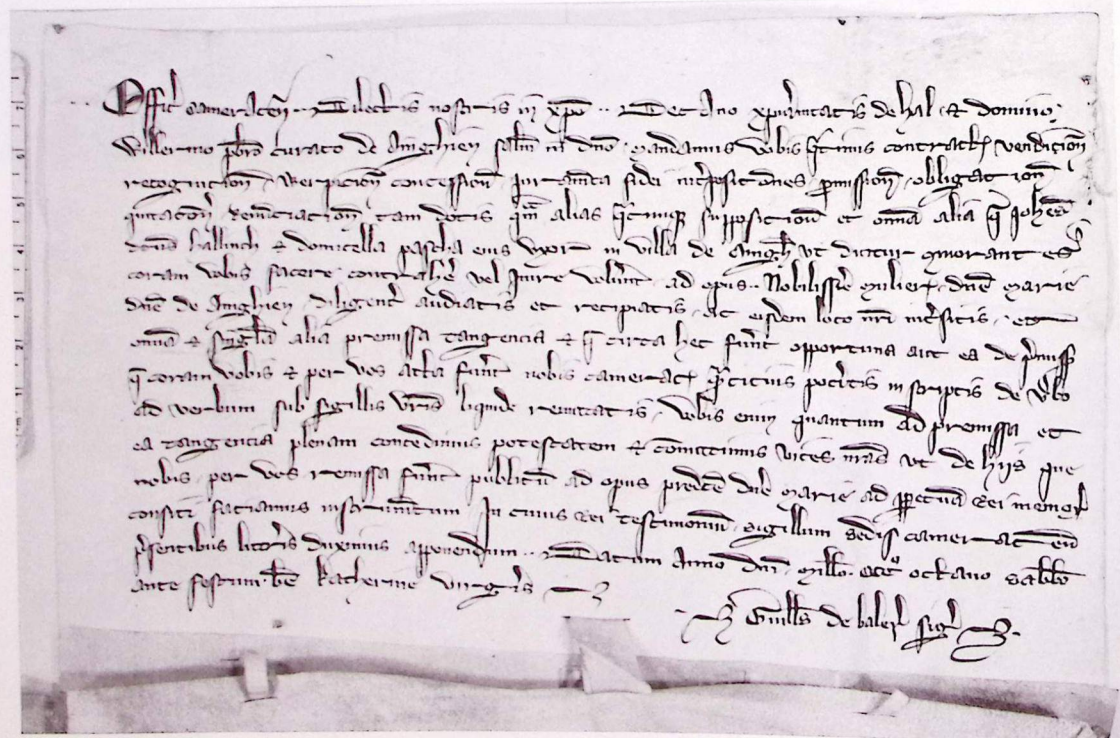 Offic' cameracen .. Dilectis nostris in xpo .. Decano xpianitatis de hal et domino
Willermo pbro curato de Ainghien salm in dno . mandamus vobis contract' vendicion
recognicion . Werpicion concession . juramta fidei interposicones promission . obligacion
quitacon . renunciacion tam dotis qm alias supposicion et omnia alia q Johes
dcus hallinch et domicella pascha eius uxor in villa de Aingh ut dicitur morantes
coram vobis facere contrahere vel inire volunt . ad opus .. Nobilissime mulier' . dne marie
dne de Ainghien . diligent' audiatis et recipiatis . ac eisdem loco nri intersitis . et
omnia et singula alia premissa tangencia et q circa hec funt opportuna aut ea de pmiss
q coram vobis et per vos acta funt nobis camerac' citius poteritis in scriptis de vbo
ad verbum sub sigillis vris liquide remittatis . Vobis enim quantum ad premissa et
ea tangencia plenam concedimus potestatem et comittimus vices nras ut de hijs que
nobis . per vos remissa funt publicu ad opus predce dne marie ad ppetua rei memor'
confici faciamus instrumtum . In cuius rei testimoniu . sigillum sedis cameracen
psentibus litteris duximus apponendum .. Datum Anno dni . millo . ccc° octavo sabbo
ante festum . be katherine virginis
Guills de baler' sigr